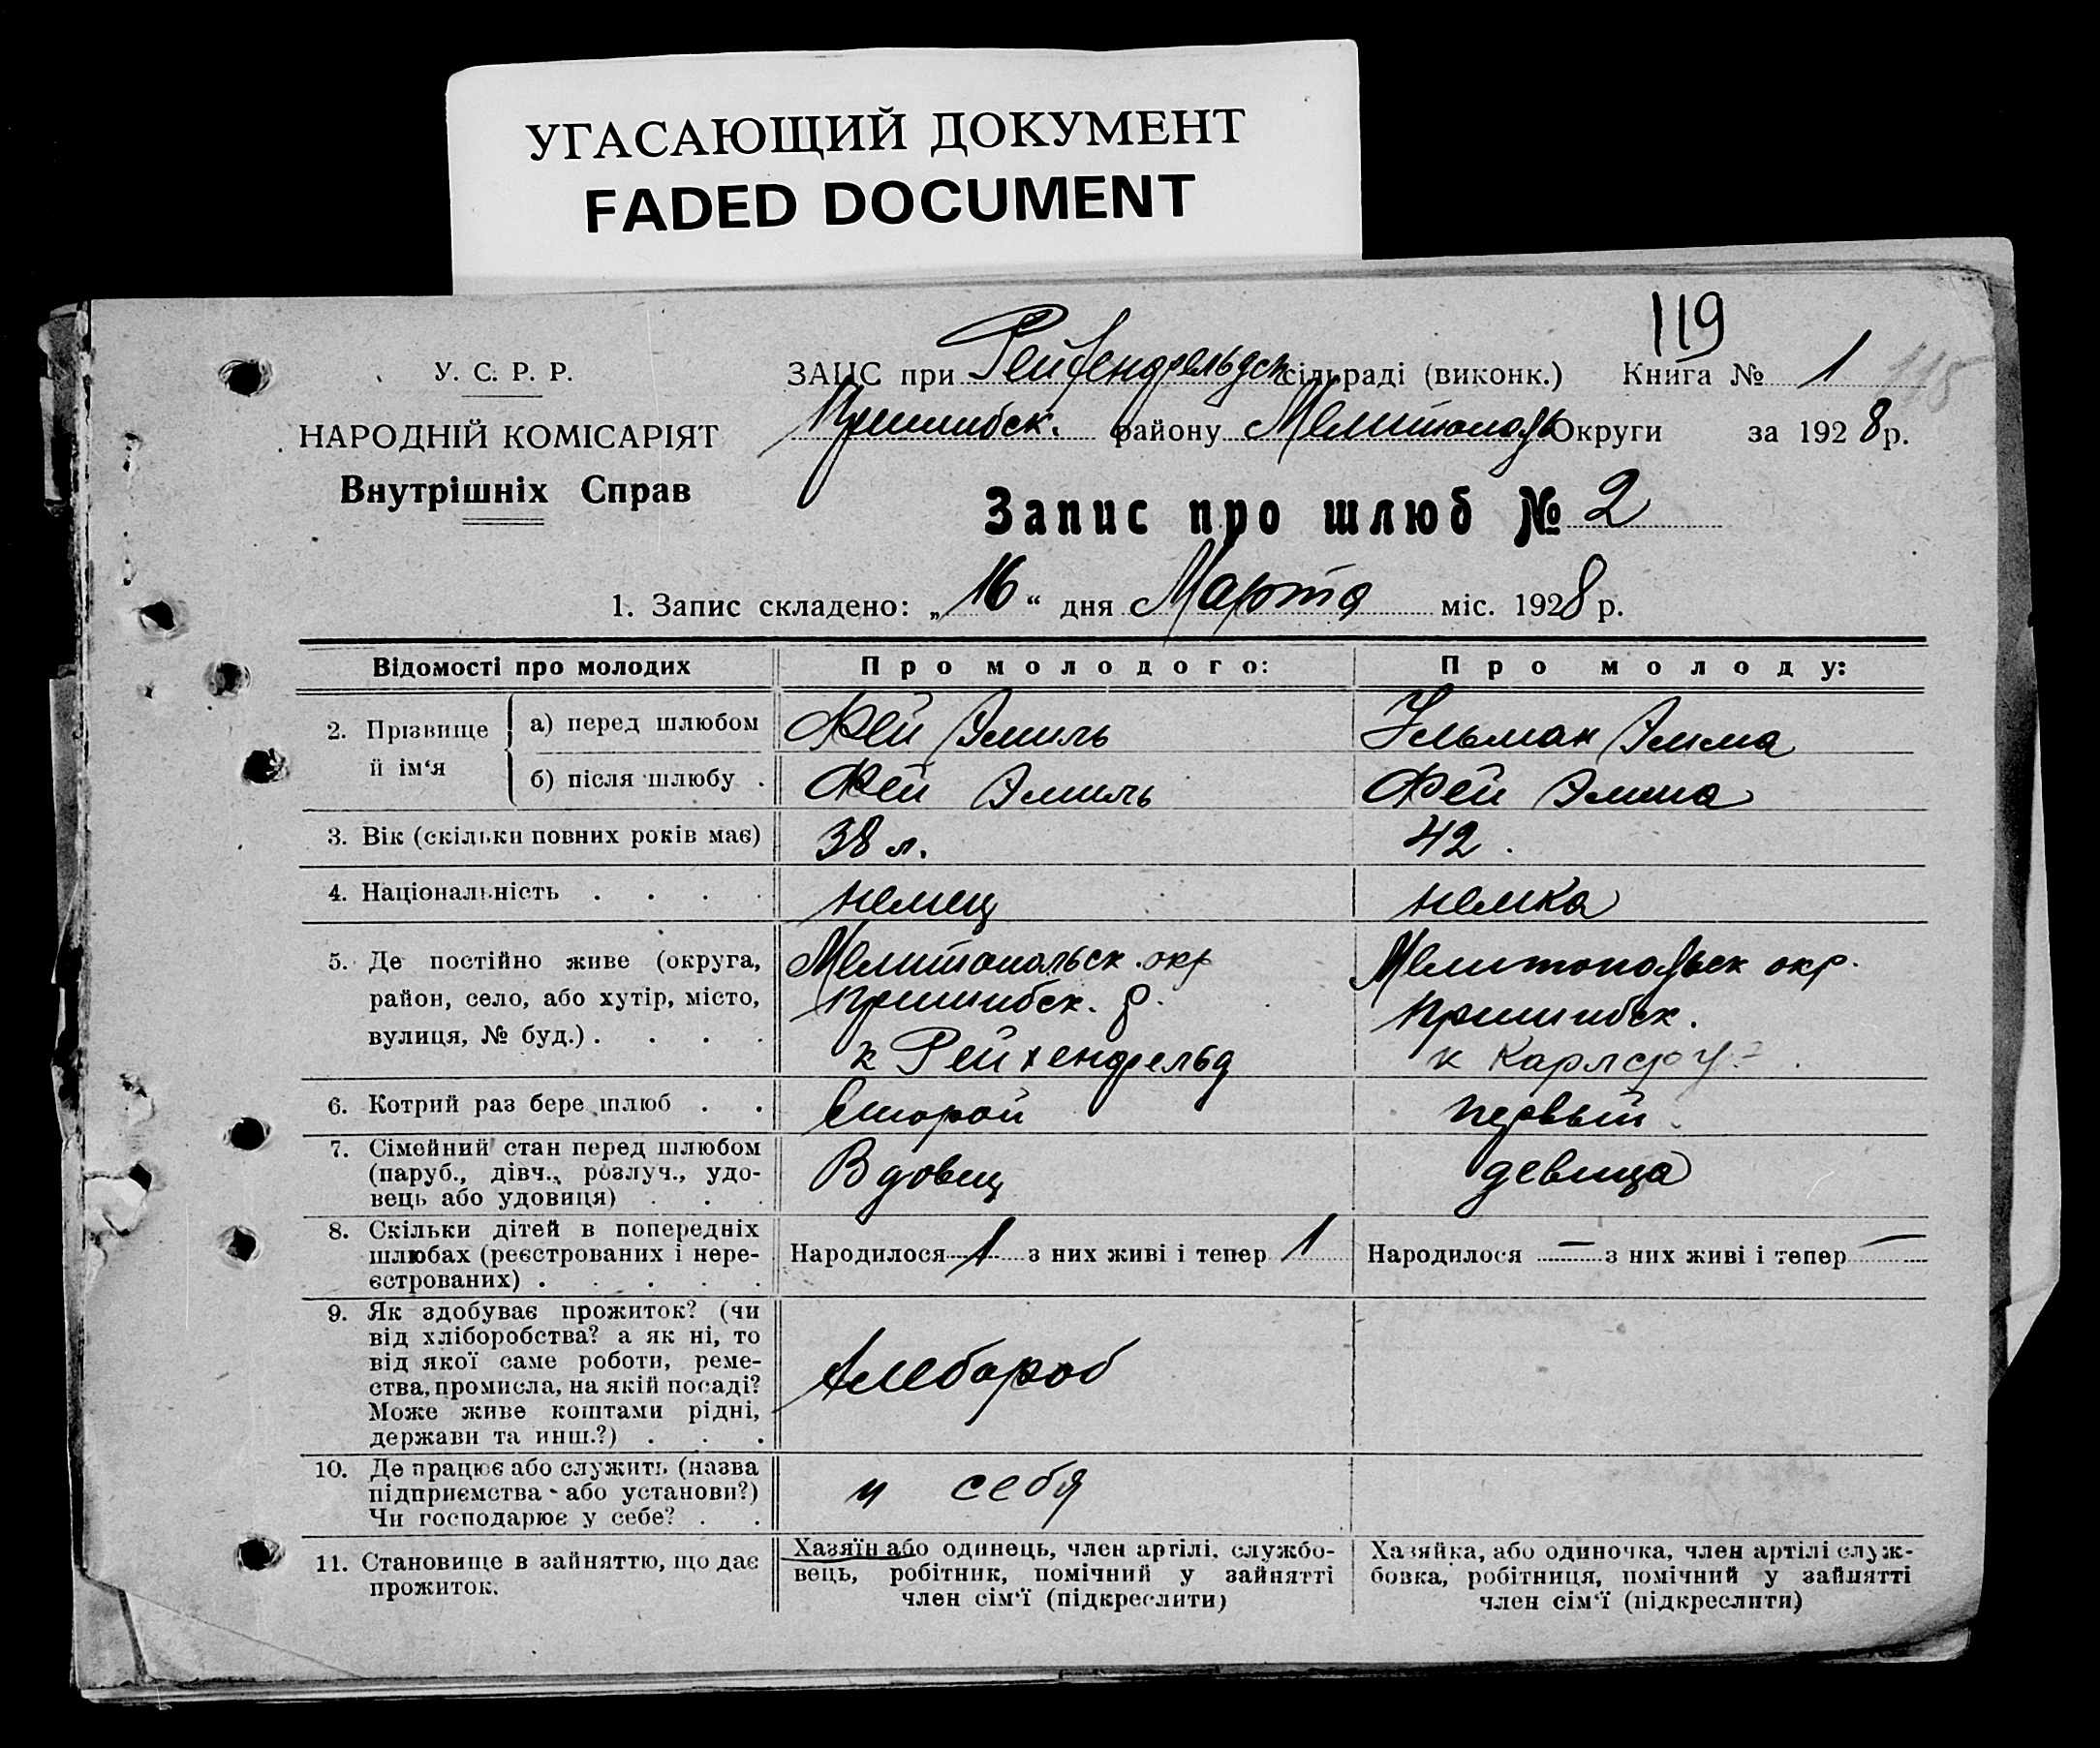 УГАСАЮЩИЙ ДОКУМЕНТ
FADED DOCUMENT
119
У. С. Р. Р.
ЗАЦС при Рейхенфельдск сільраді (виконк.) Книга № 1 115
НАРОДНІЙ КОМІСАРІЯТ
Внутрішніх Справ
Пришибск. району Мелитополь Округи за 1928 р.
Запис про шлюб № 2
1. Запис складено: „16“ дня Марта міс. 1928 р.
Відомості про молодих Про молодого: Про молоду:
2. Прізвище й ім‘я
а) перед шлюбом Фей Эмиль Ульман Эмма
б) після шлюбу . Фей Эмиль Фей Эмма
3. Вік (скільки повних років має) 38 л. 42 .
4. Національність . . . . немец немка
5. Де постійно живе (округа, Мелитопольск. окр Мелитопольск окр.
район, село, або хутір, місто, Пришибск. р. Пришибск.
вулиця, № буд.) . . . . к Рейхенфельд к Карлсру
6. Котрий раз бере шлюб . . Второй первый
7. Сімейний стан перед шлюбом
(паруб., дівч., розлуч., удо- Вдовец девица
вець або удовиця) . . .
8. Скільки дітей в попередніх
шлюбах (реєстрованих і нере- Народилося 1 з них живі і тепер 1 Народилося — з них живі і тепер —
єстрованих) . . . . .
9. Як здобуває прожиток? (чи
від хліборобства? а як ні, то
від якої саме роботи, реме-
ства, промисла, на якій посаді? Хлебороб
Може живе коштами рідні,
держави та инш.?) . . .
10. Де працює або служить (назва
підприємства або установи?) у себя
Чи господарює у себе? . .
11. Становище в зайняттю, що дає
прожиток.
Хазяїн або одинець, член артілі, службо-
вець, робітник, помічний у зайнятті
член сім‘ї (підкреслити)
Хазяйка, або одиночка, член артілі служ-
бовка, робітниця, помічний у зайнятті
член сім‘ї (підкреслити)